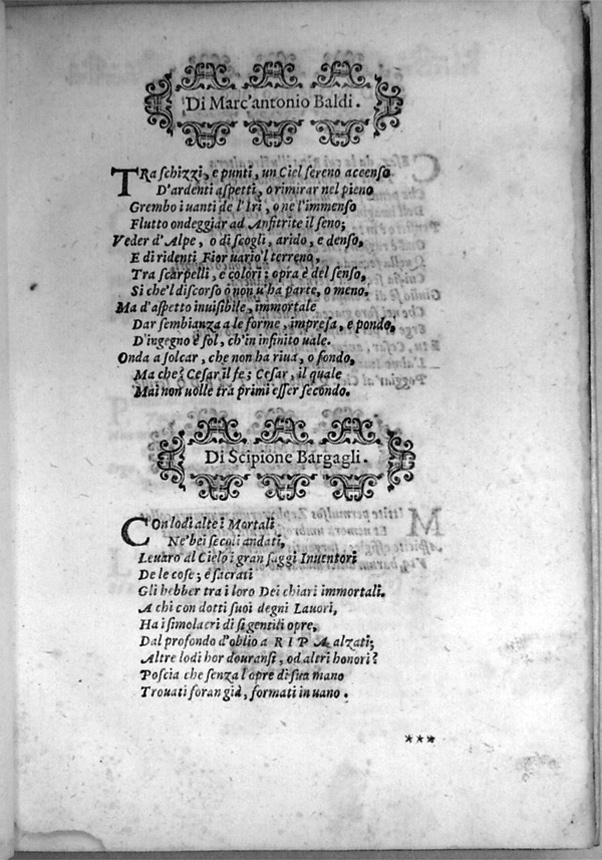 Di Marc'antonio Baldi.
TRa schizzi, e punti, un Ciel sereno accenso
D'ardenti aspetti, o rimirar nel pieno
Grembo i uanti de l'Iri, o ne l'immenso
Flutto ondeggiar ad Anfitrite il seno;
Veder d'Alpe, o di scogli, arido, e denso,
E di ridenti Fior uario'l terreno,
Tra scarpelli, e colori; opra è del senso,
Si che'l discorso ò non u'ha parte, o meno.
Ma d'aspetto inuisibile, immortale
Dar sembianza a le forme, impresa, e pondo,
D'ingegno è sol, ch'in infinito uale.
Onda a solcar, che non ha riua, o fondo,
Ma che? Cesar il fe; Cesar, il quale
Mai non uolle tra primi esser secondo.
Di Scipione Bargagli.
COn lodi alte i Mortali
Ne'bei secoli andati,
Leuaro al Cielo i gran saggi Inuentori
De le cose; e sacrati
Gli hebber tra i loro Dei chiari immortali.
A chi con dotti suoi degni Lauori,
Ha i simolacri di sì gentili opre,
Dal profondo d'oblio a RIPA alzati;
Altre lodi hor douransi, od altri honori?
Poscia che senza l'opre di sua mano
Trouati foran già, formati in uano.
***